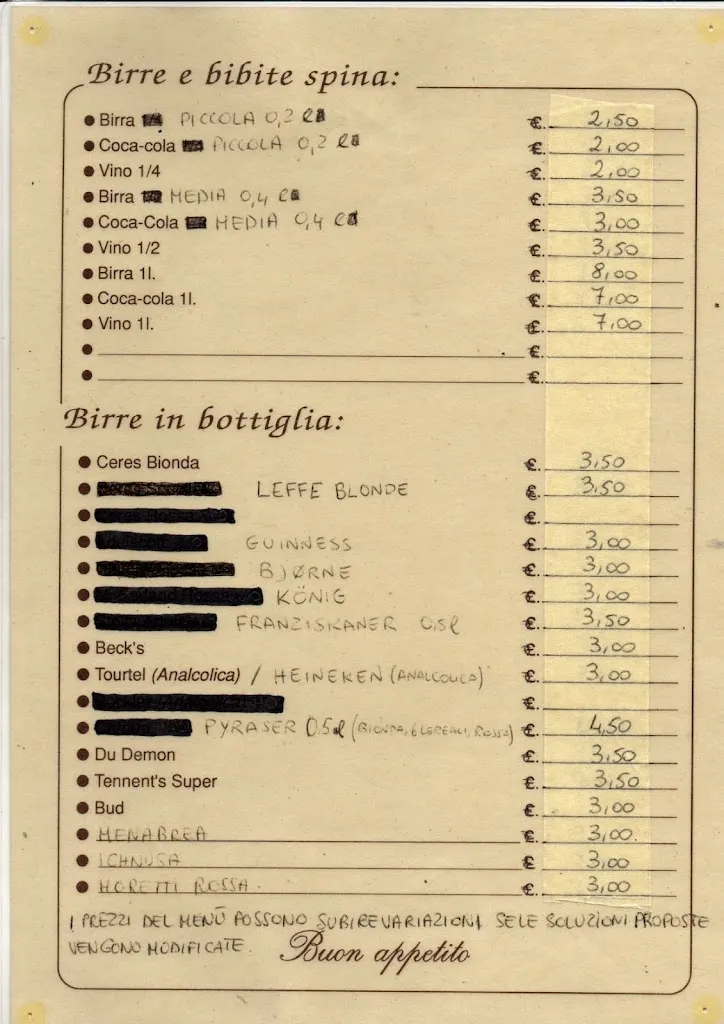 Birre e bibite spina:
● Birra PICCOLA 0,2 l €. 2,50
● Coca-cola PICCOLA 0,2 l €. 2,00
● Vino 1/4 €. 2,00
● Birra MEDIA 0,4 l €. 3,50
● Coca-Cola MEDIA 0,4 l €. 3,00
● Vino 1/2 €. 3,50
● Birra 1l. €. 8,00
● Coca-cola 1l. €. 7,00
● Vino 1l. €. 7,00
● €.
● €.
Birre in bottiglia:
● Ceres Bionda €. 3,50
● LEFFE BLONDE €. 3,50
● €.
● GUINNESS €. 3,00
● BJØRNE €. 3,00
● KÖNIG €. 3,00
● FRANZISKANER 0,5l €. 3,50
● Beck's €. 3,00
● Tourtel (Analcolica) / HEINEKEN (ANALCOLICA) €. 3,00
● €.
● PYRASER 0,5l (BIONDA, 6 CEREALI, ROSSA) €. 4,50
● Du Demon €. 3,50
● Tennent's Super €. 3,50
● Bud €. 3,00
● MENABREA €. 3,00
● ICHNUSA € 3,00
● MORETTI ROSSA €. 3,00
I PREZZI DEL MENÙ POSSONO SUBIRE VARIAZIONI SE LE SOLUZIONI PROPOSTE
VENGONO MODIFICATE.
Buon appetito